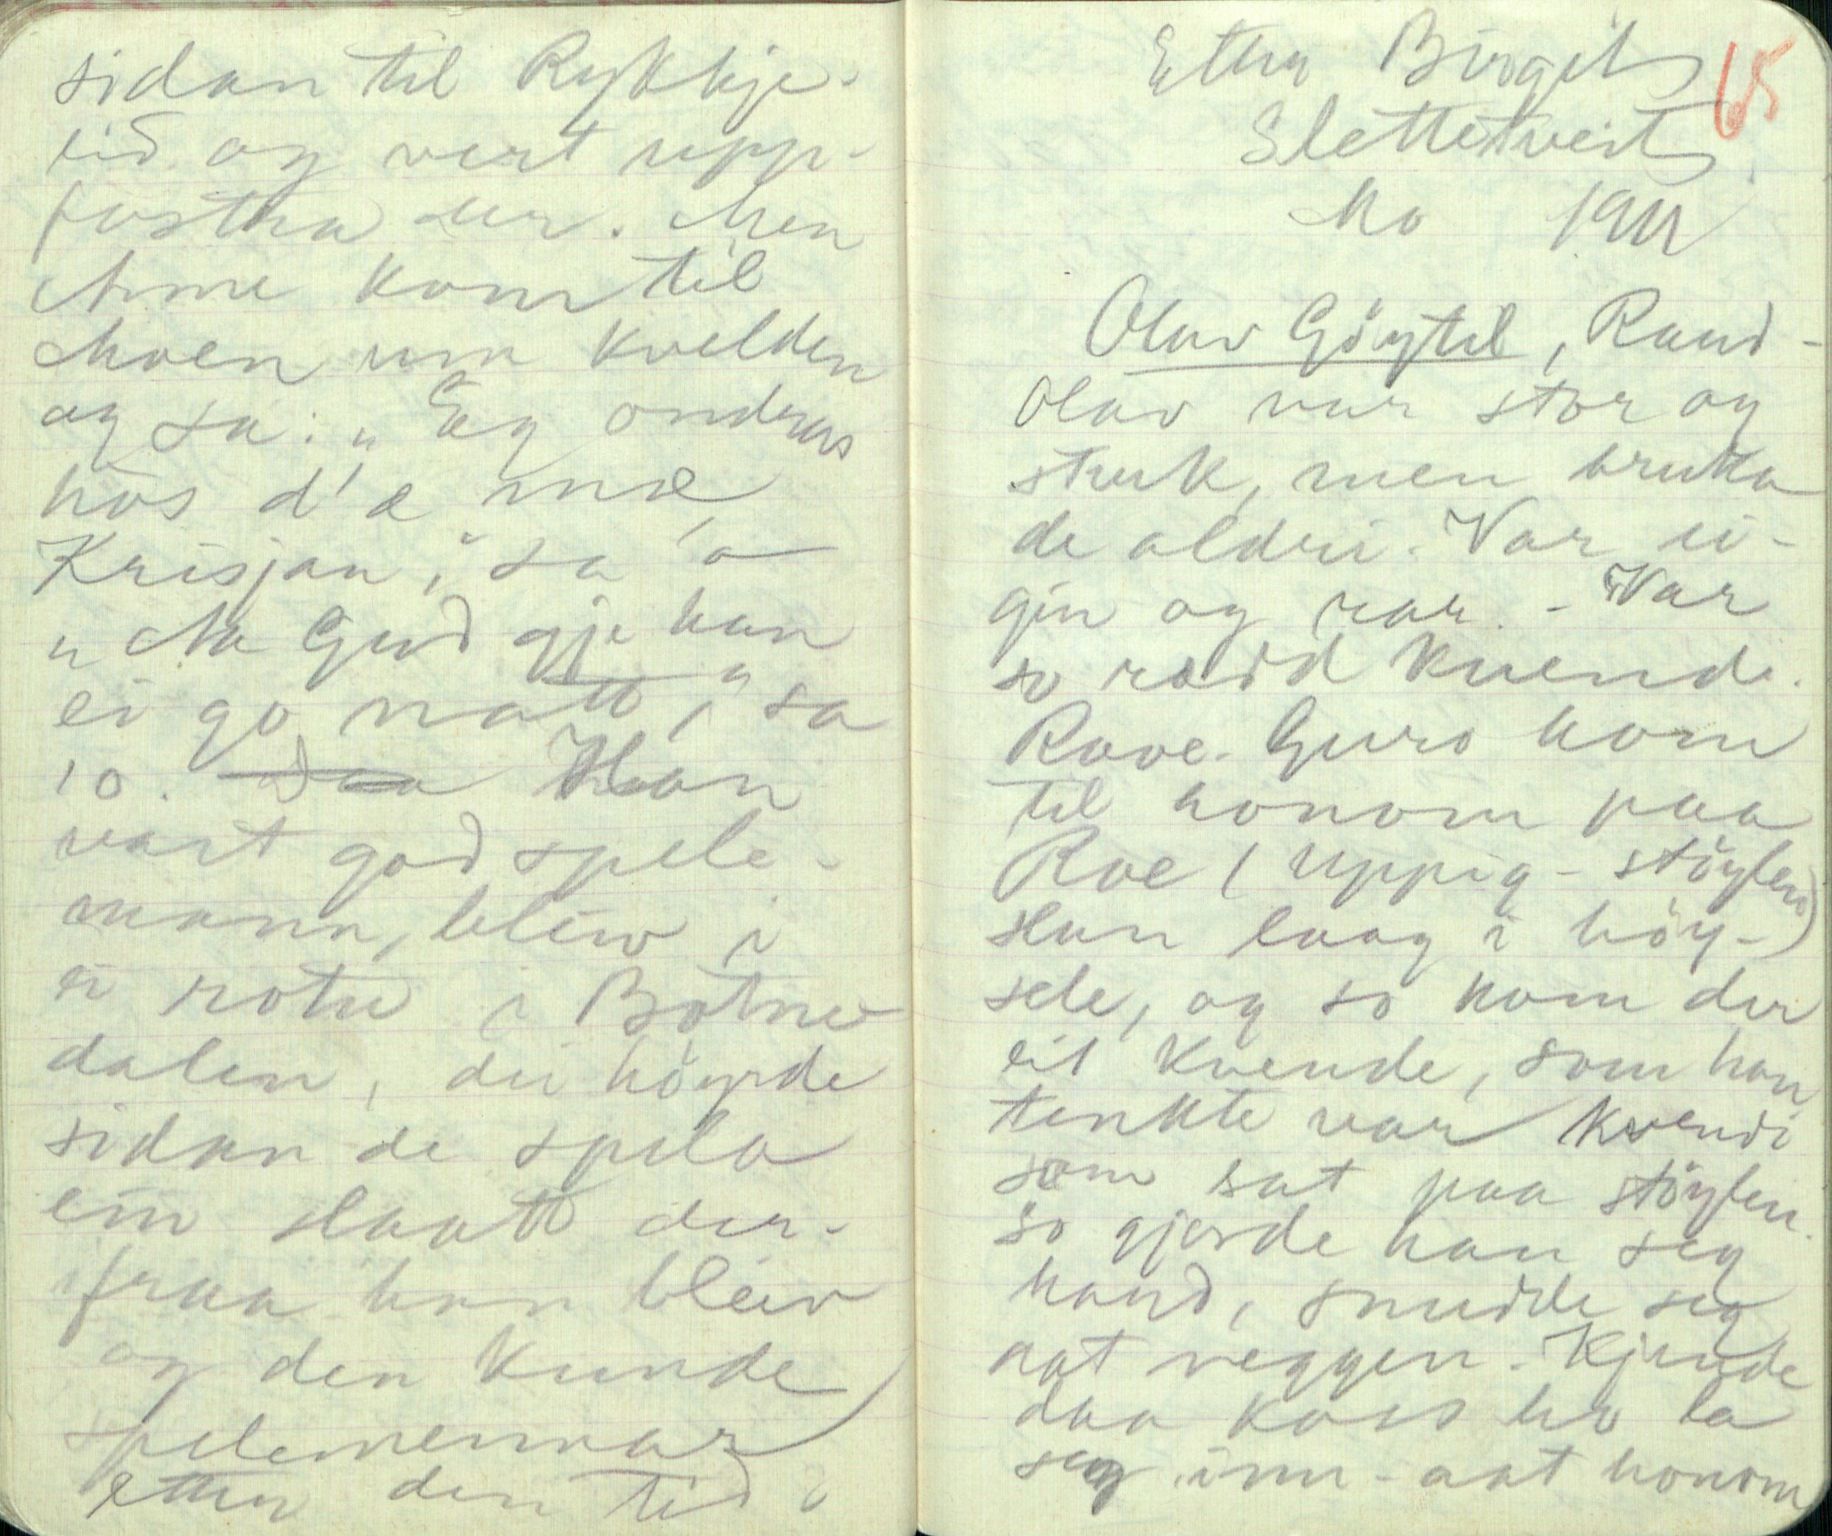 sidan til Rykkje-
eid og vert upp-
fostra der. Men
Anne kom til
Moen um kvelden
og sa: „Eg ondras
hòs d'æ mæ
Krisjan," sa 'o
„Aa Gud gje han
ei go natt," sa
'o. Daa Han
vart god spele-
mann, bleiv i
ei rotu i Bòtne-
dalen, dei höyrde
sidan de spela
ein slaatt der-
ifraa han bleiv
og den kunde
spelemennar
etter den tid
Etter Birgit
Slettetveit
Mo 1911
65
Olav Göytil, Raud-
Olav var stor og
sterk, men bruka
de aldri. Var ei-
gin og rar. - Var
so rædd kvende.
Rove-Guro kom
til honom paa
Roe (uppig-stöylen)
Han laag i höy-
sele, og so kom der
eit kvende, som han
tenkte var kvendi
som sat paa stöylen.
so gjorde han seg
hard, snudde seg
aat veggen. Kjende
daa koss ho la
seg inn-aat honom